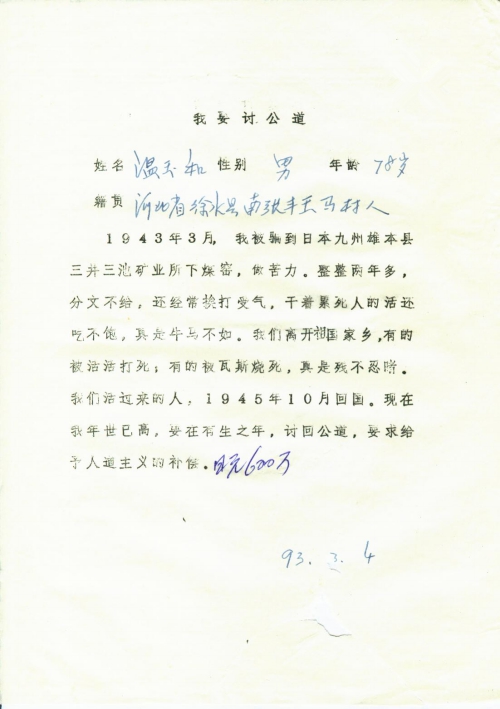 我要讨公道
姓名 温玉和 性别 男 年龄 78岁
籍贯 河北省徐水县南张丰王马村人
１９４３年３月，我被骗到日本九州雄本县
三井三池矿业所下煤窑，做苦力。整整两年多，
分文不给，还经常挨打受气，干着累死人的活还
吃不饱，真是牛马不如。我们离开祖国家乡，有的
被活活打死；有的被瓦斯烧死，真是残不忍睹。
我们活过来的人，１９４５年１０月回国。现在
我年世已高，要在有生之年，讨回公道，要求给
予人道主义的补偿．日元600万
93.3.4